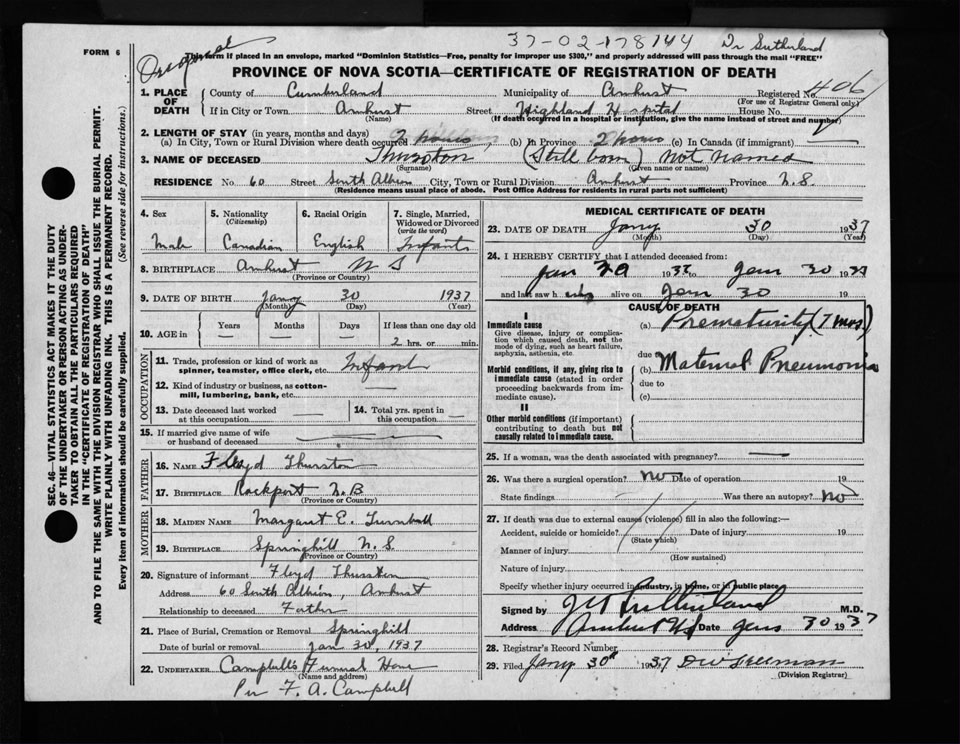 37-02-178744 Dr Sutherland
FORM 6
Original
This form if placed in an envelope, marked "Dominion Statistics—Free, penalty for improper use $300," and properly addressed will pass through the mail "FREE"
PROVINCE OF NOVA SCOTIA—CERTIFICATE OF REGISTRATION OF DEATH
406
1. PLACE OF DEATH County of Cumberland Municipality of Amherst Registered No.
(For use of Registrar General only)
If in City or Town Amherst Street Highland Hospital House No.
(Name) (If death occurred in a hospital or institution, give the name instead of street and number)
2. LENGTH OF STAY (in years, months and days)
(a) In City, Town or Rural Division where death occurred 2 hours, (b) In Province 2 hours (c) In Canada (if immigrant) —
3. NAME OF DECEASED Thurston (Still born) Not Named
(Surname) (Given name or names)
RESIDENCE No. 60 Street South Albion City, Town or Rural Division Amherst Province N.S.
(Residence means usual place of abode. Post Office Address for residents in rural parts not sufficient)
SEC. 46—VITAL STATISTICS ACT MAKES IT THE DUTY
OF THE UNDERTAKER OR PERSON ACTING AS UNDER-
TAKER TO OBTAIN ALL THE PARTICULARS REQUIRED
IN THE "CERTIFICATE OF REGISTRATION OF DEATH"
AND TO FILE THE SAME WITH THE DIVISION REGISTRAR WHO SHALL ISSUE THE BURIAL PERMIT.
WRITE PLAINLY WITH UNFADING INK. THIS IS A PERMANENT RECORD.
Every item of information should be carefully supplied. (See reverse side for instructions.)
4. Sex 5. Nationality (Citizenship) 6. Racial Origin 7. Single, Married, Widowed or Divorced (write the word)
Male Canadian English Infant
8. BIRTHPLACE Amherst N S
(Province or Country)
9. DATE OF BIRTH Jany 30 1937
(Month) (Day) (Year)
10. AGE in Years Months Days If less than one day old
— — — 2 hrs. or min.
OCCUPATION
11. Trade, profession or kind of work as spinner, teamster, office clerk, etc. Infant
12. Kind of industry or business, as cotton-mill, lumbering, bank, etc. —
13. Date deceased last worked at this occupation — 14. Total yrs. spent in this occupation —
15. If married give name of wife or husband of deceased —
FATHER
16. NAME Floyd Thurston
17. BIRTHPLACE Rockport N.B
(Province or Country)
MOTHER
18. MAIDEN NAME Margaret E. Turnbull
19. BIRTHPLACE Springhill N.S.
(Province or Country)
20. Signature of informant Floyd Thurston
Address 60 South Albion, Amherst
Relationship to deceased Father
21. Place of Burial, Cremation or Removal Springhill
Date of burial or removal Jan 30, 1937
22. UNDERTAKER Campbells Funeral Home
(Name and address)
Per F. A. Campbell
MEDICAL CERTIFICATE OF DEATH
23. DATE OF DEATH Jany 30 1937
(Month) (Day) (Year)
24. I HEREBY CERTIFY that I attended deceased from:
Jan 1937 to Jan 30 1937
and last saw h alive on Jan 30 19
CAUSE OF DEATH
I
Immediate cause (a) Prematurity (7 mos)
Give disease, injury or complication which caused death, not the mode of dying, such as heart failure, asphyxia, asthenia, etc.
due to
(b) Maternal Pneumonia
Morbid conditions, if any, giving rise to immediate cause (stated in order proceeding backwards from immediate cause).
due to
(c)
II
Other morbid conditions (if important) contributing to death but not causally related to immediate cause.
25. If a woman, was the death associated with pregnancy? —
26. Was there a surgical operation? No Date of operation 19
State findings Was there an autopsy? No
27. If death was due to external causes (violence) fill in also the following:—
Accident, suicide or homicide? Date of injury 19
(State which)
Manner of injury
(How sustained)
Nature of injury
Specify whether injury occurred in industry, in home, or in public place
Signed by Sutherland M.D.
Address Amherst NS Date Jan 30 1937
28. Registrar's Record Number
29. Filed Jany 30th 1937
(Division Registrar)